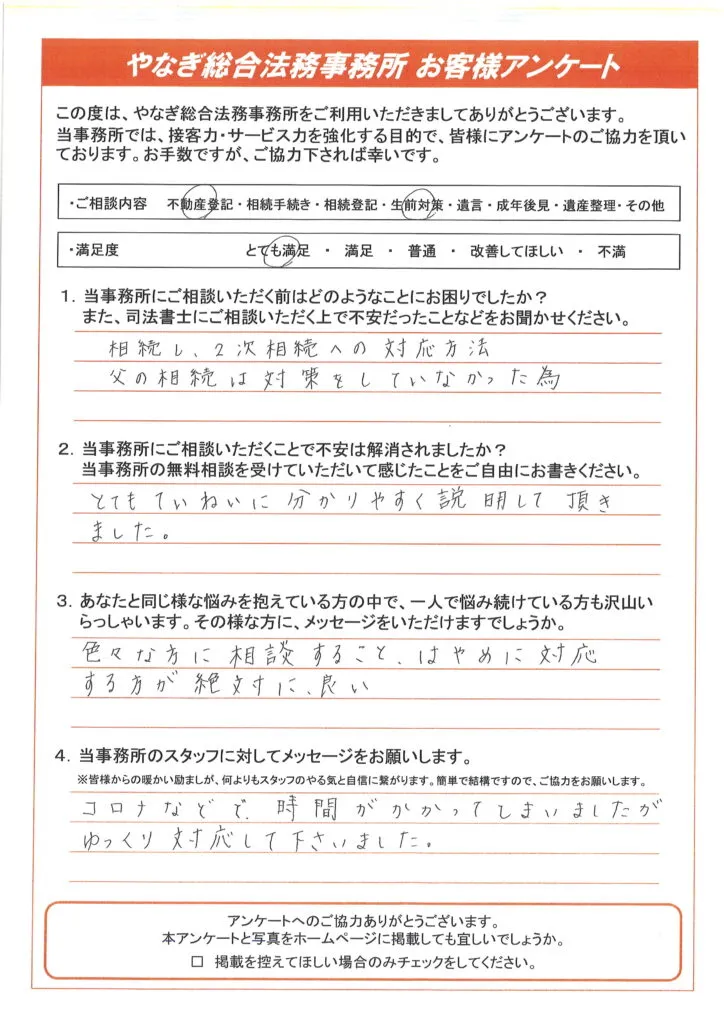 やなぎ総合法務事務所 お客様アンケート
この度は、やなぎ総合法務事務所をご利用いただきましてありがとうございます。
当事務所では、接客力・サービス力を強化する目的で、皆様にアンケートのご協力を頂い
ております。お手数ですが、ご協力下されば幸いです。
・ご相談内容 不動産登記・相続手続き・相続登記・生前対策・遺言・成年後見・遺産整理・その他
・満足度 とても満足 ・ 満足 ・ 普通 ・ 改善してほしい ・ 不満
1．当事務所にご相談いただく前はどのようなことにお困りでしたか？
また、司法書士にご相談いただく上で不安だったことなどをお聞かせください。
相続し、2次相続への対応方法
父の相続は対策をしていなかった為
2．当事務所にご相談いただくことで不安は解消されましたか？
当事務所の無料相談を受けていただいて感じたことをご自由にお書きください。
とてもていねいに分かりやすく説明して頂き
ました。
3．あなたと同じ様な悩みを抱えている方の中で、一人で悩み続けている方も沢山い
らっしゃいます。その様な方に、メッセージをいただけますでしょうか。
色々な方に相談すること、はやめに対応
する方が絶対に、良い
4．当事務所のスタッフに対してメッセージをお願いします。
※皆様からの暖かい励ましが、何よりもスタッフのやる気と自信に繋がります。簡単で結構ですので、ご協力をお願いします。
コロナなどで、時間がかかってしまいましたが
ゆっくり対応して下さいました。
アンケートへのご協力ありがとうございます。
本アンケートと写真をホームページに掲載しても宜しいでしょうか。
□ 掲載を控えてほしい場合のみチェックをしてください。